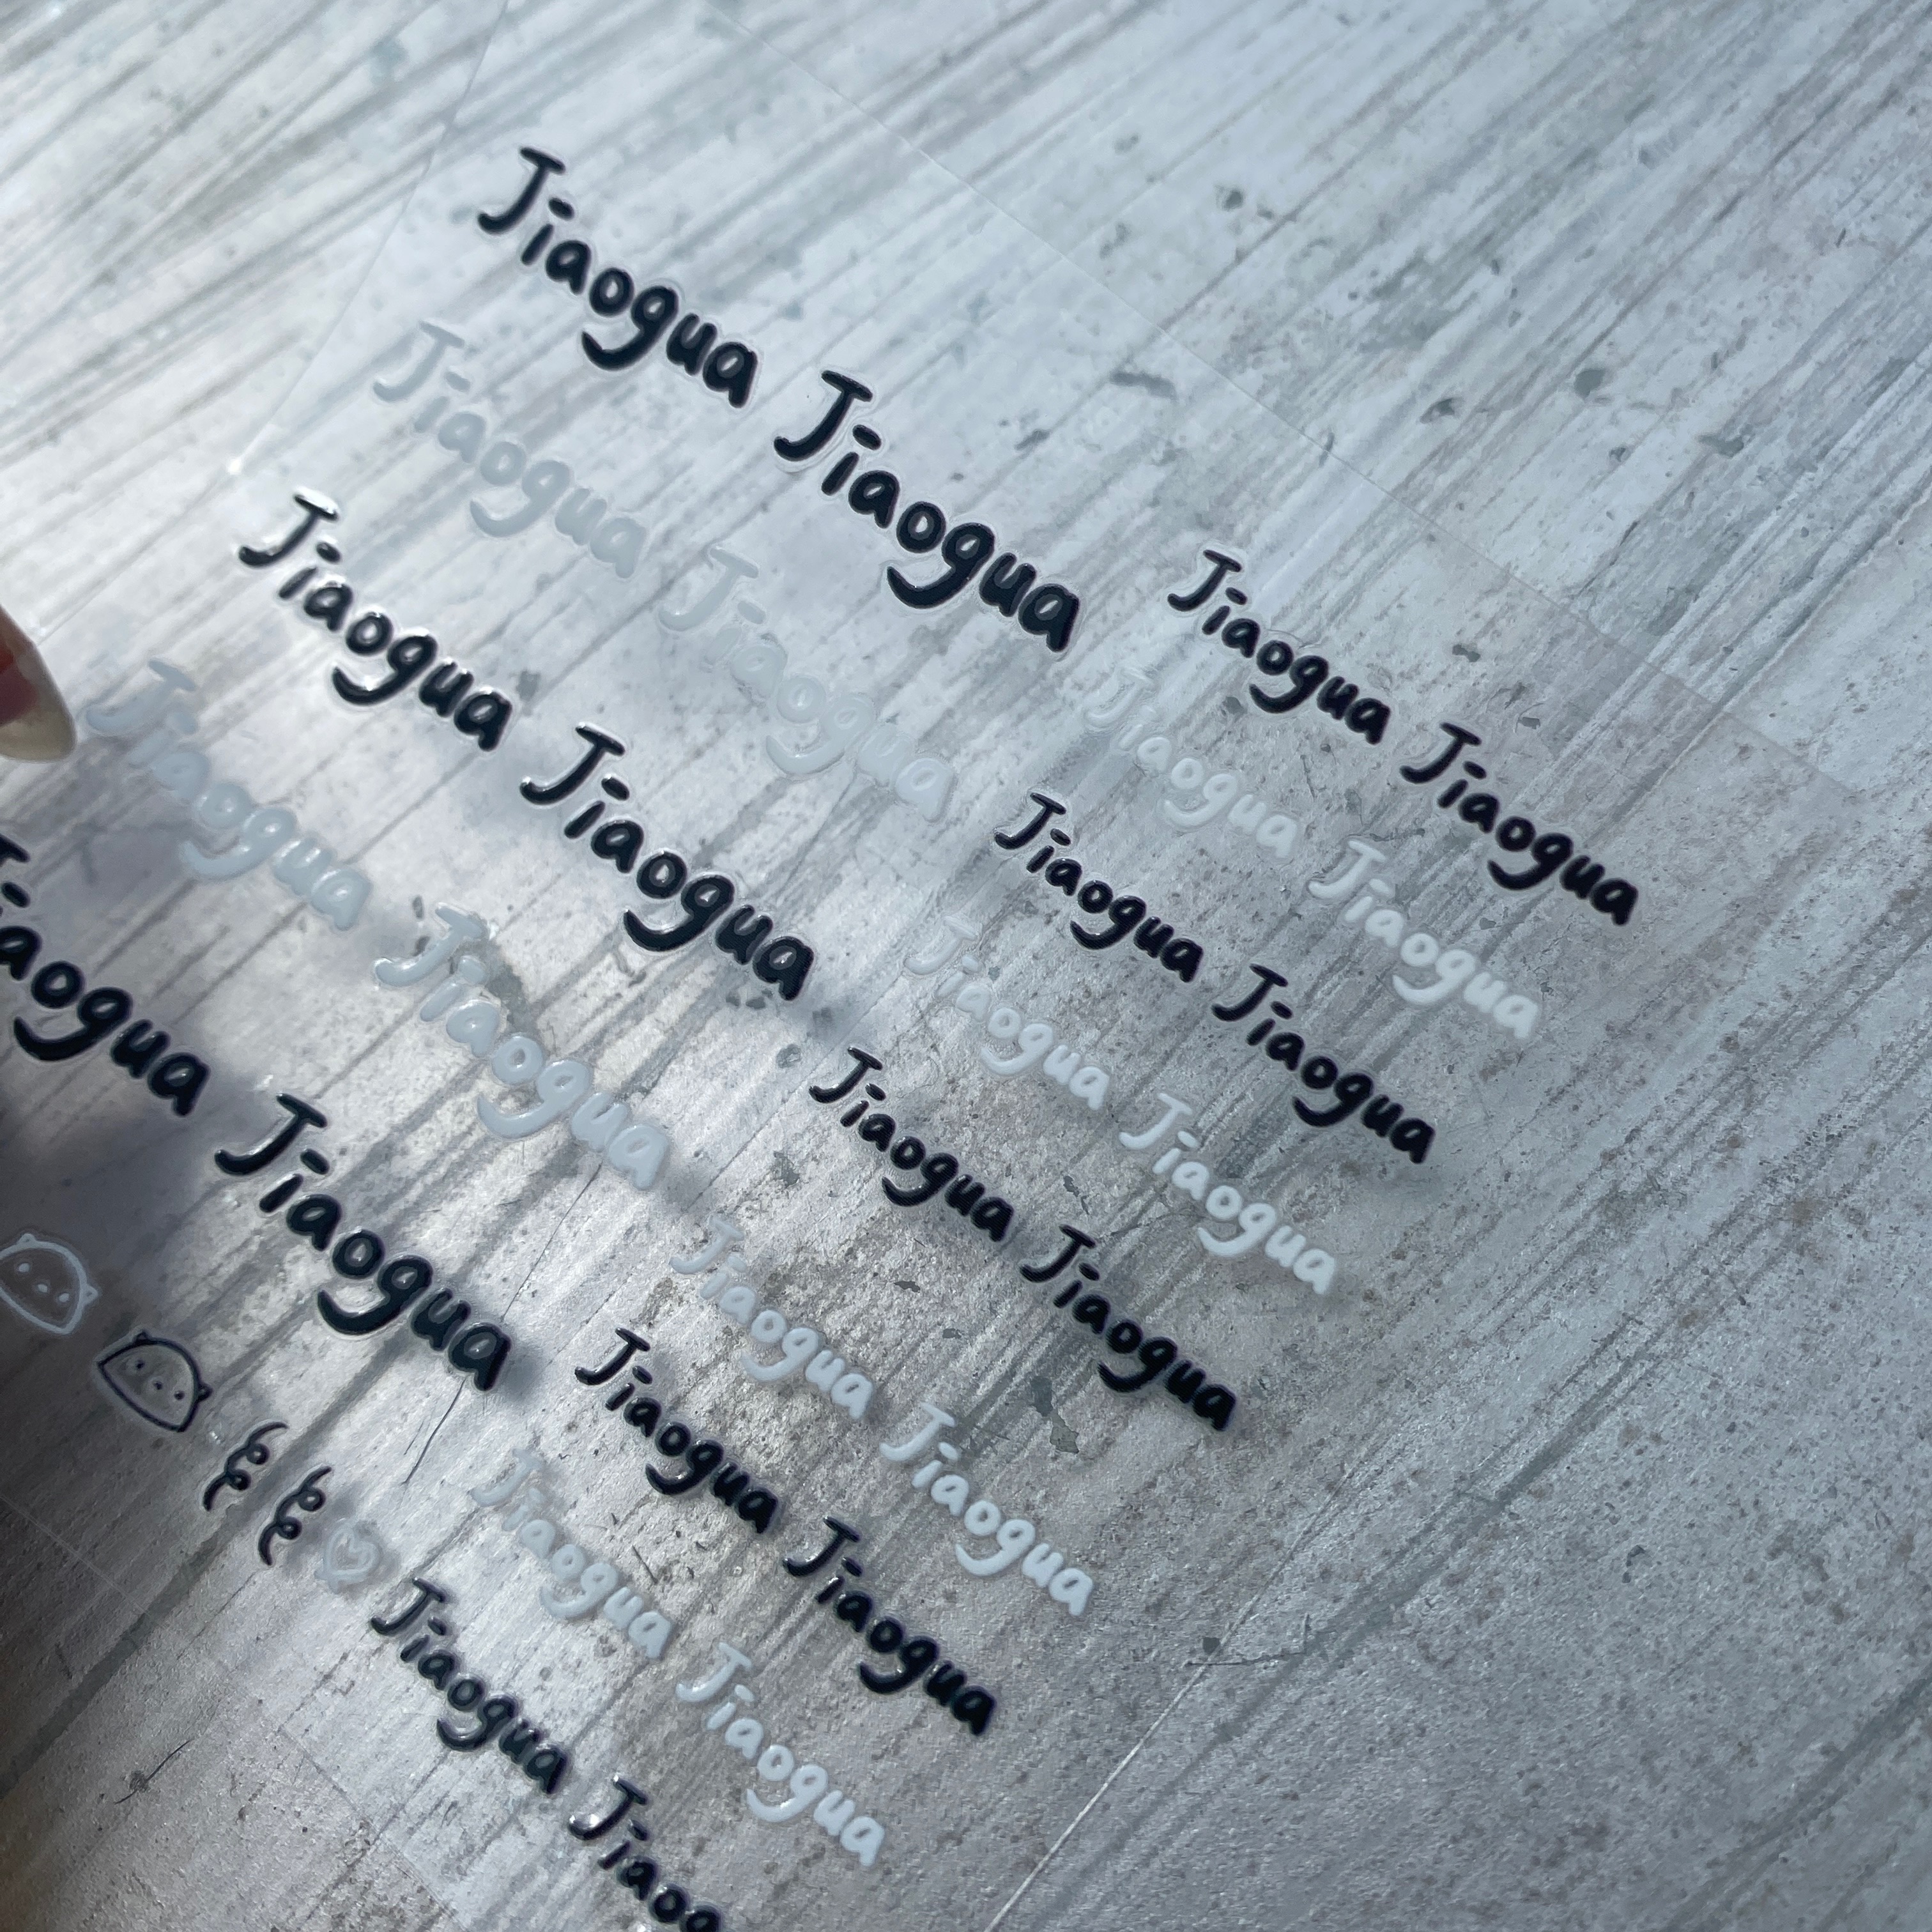 Jiaogua Jiaogua
Jiaogua Jiaogua
Jiaogua Jiaogua
Jiaogua Jiaogua
Jiaogua Jiaogua
Jiaogua Jiaogua
Jiaogua Jiaogua
Jiaogua Jiaogua
Jiaogua Jiaogua
Jiaogua Jiaogua
Jiaogua Jiaogua
Jiaogua Jiaogua
Jiaogua Jiaogua
Jiaogua Jiaog